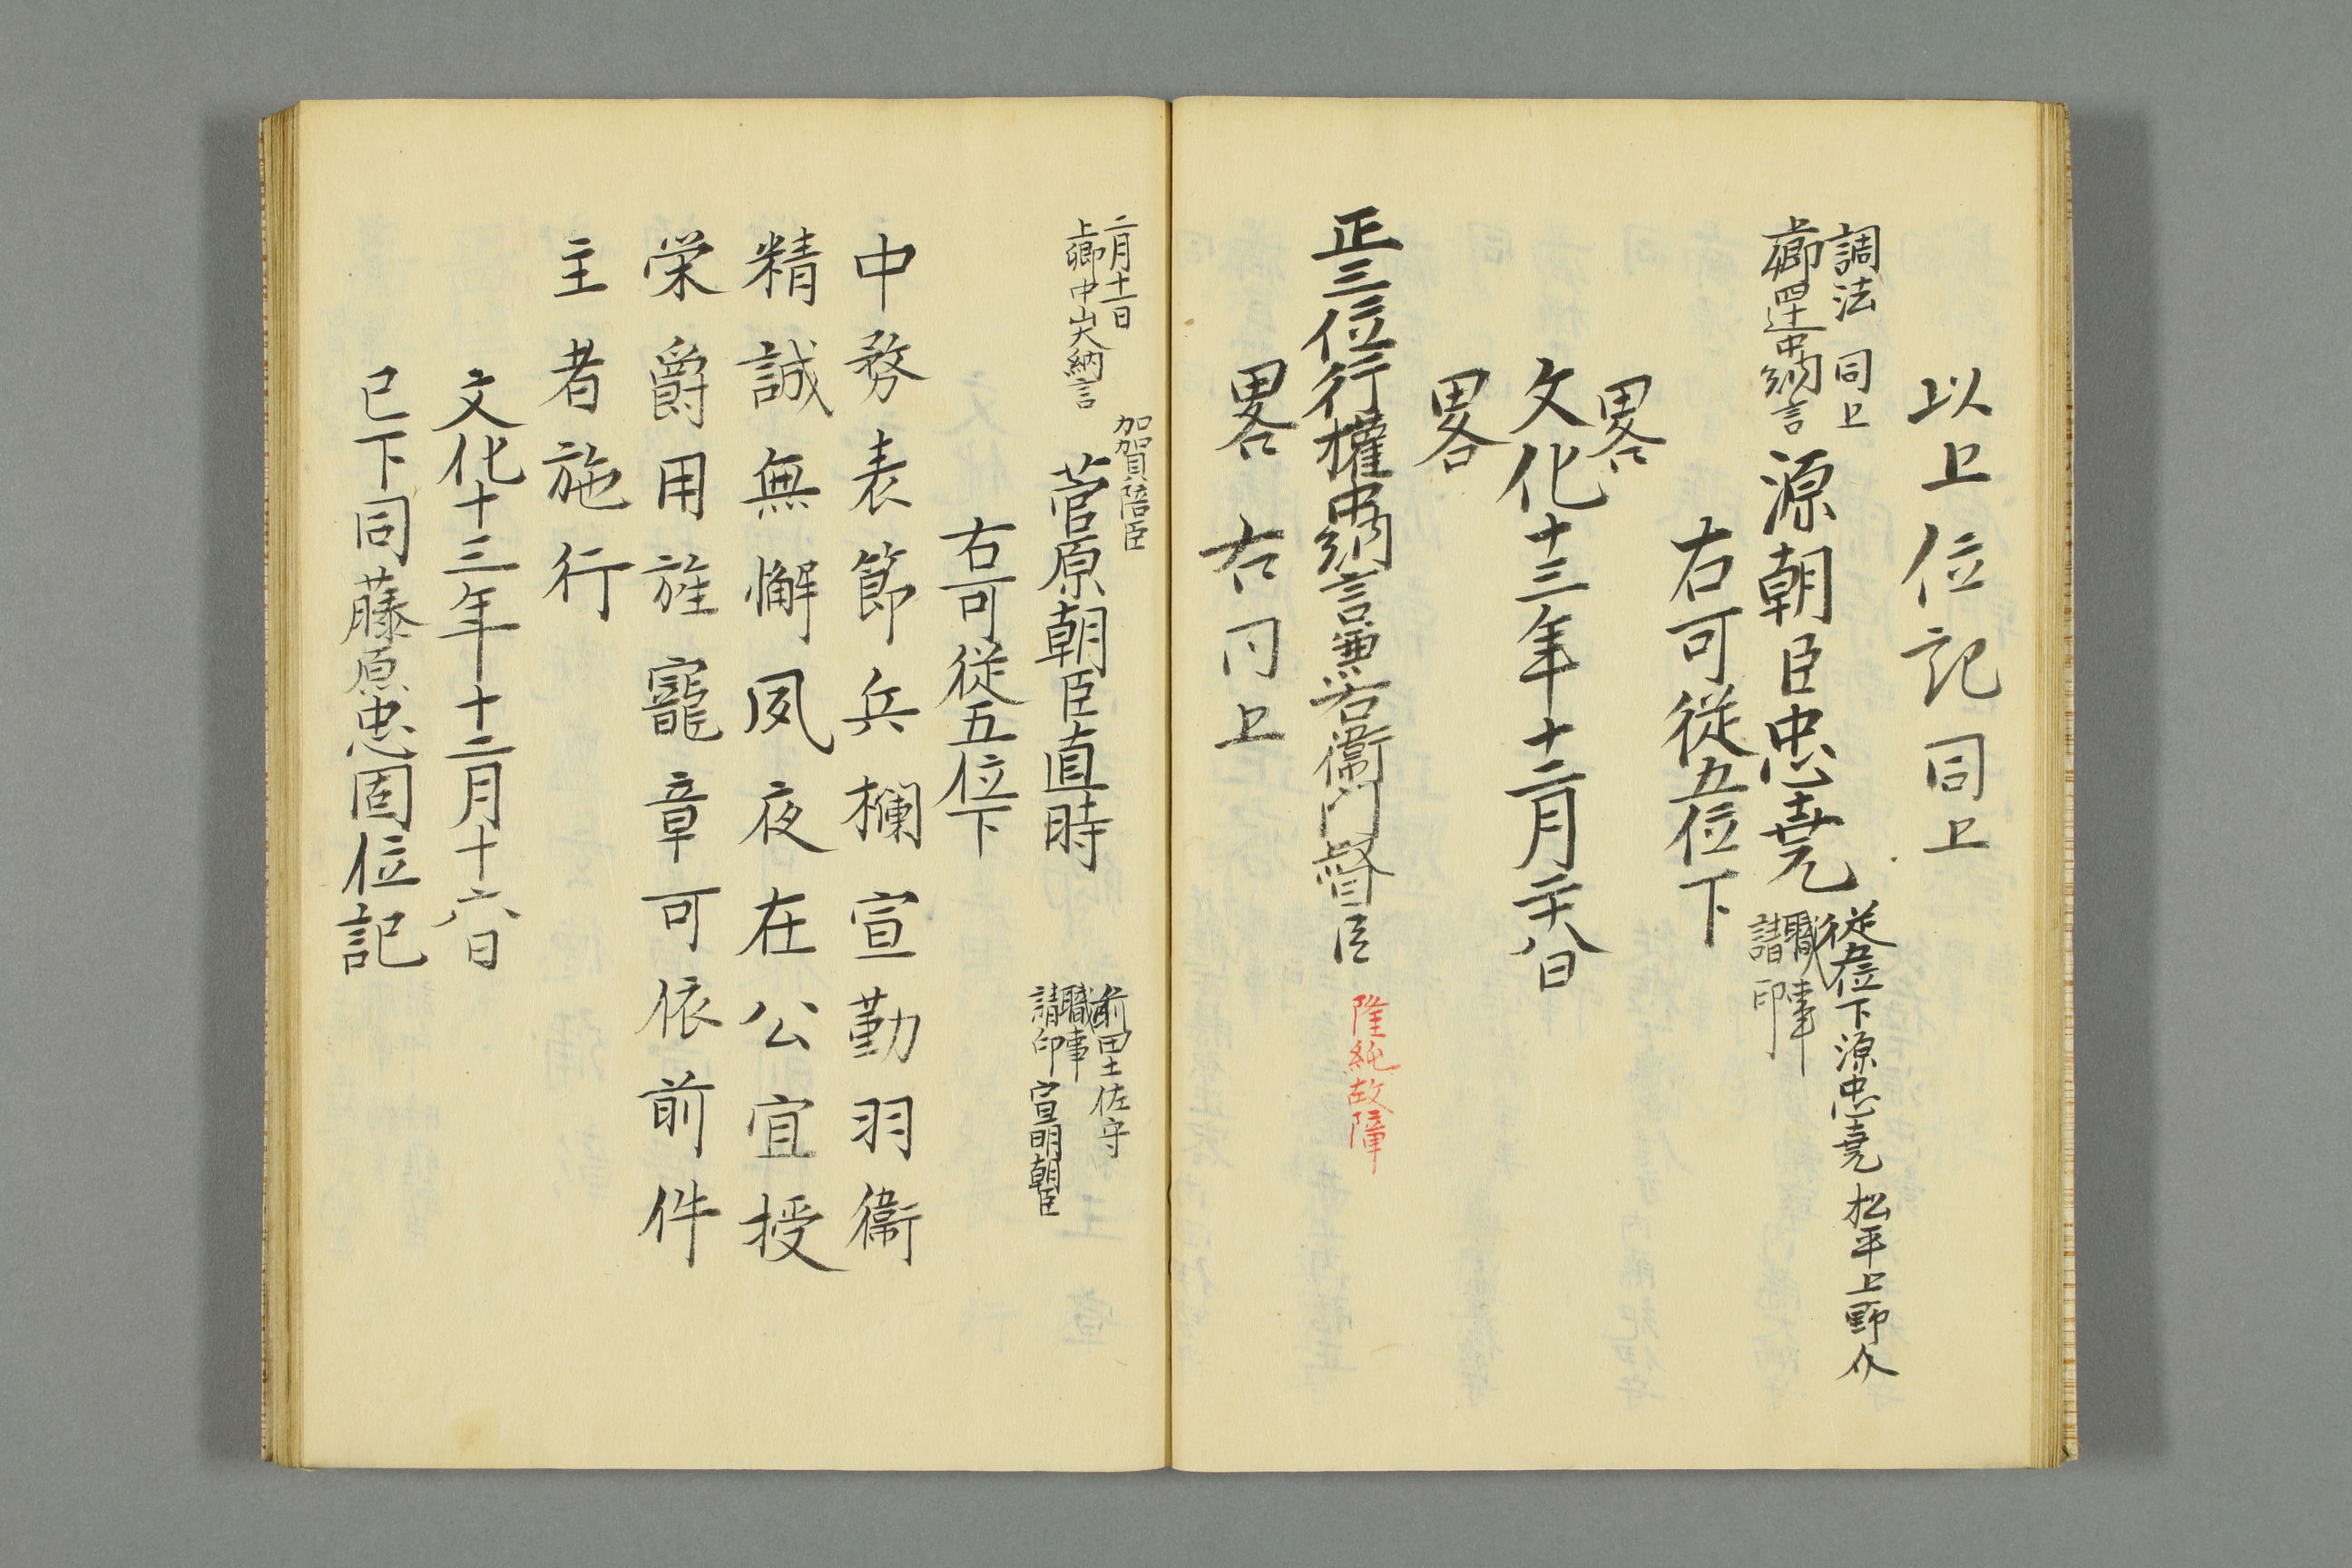 以上位記同上
調法 同上
上卿 四辻中納言
源朝臣忠尭
従五位下源忠尭 松平上野介
職事
請印
右可従五位下
畧
文化十三年十二月廿八日
畧
正三位行權中納言兼右衛門督臣 隆純故障
畧 右同上
二月十一日
上卿 中山大納言
加賀陪臣
菅原朝臣直時
前田土佐守
職事
請印 宣明朝臣
右可従五位下
中務表節兵欄宣勤羽衞
精誠無懈夙夜在公宜授
栄爵用旌寵章可依前件
主者施行
文化十三年十二月十六日
已下同藤原忠固位記